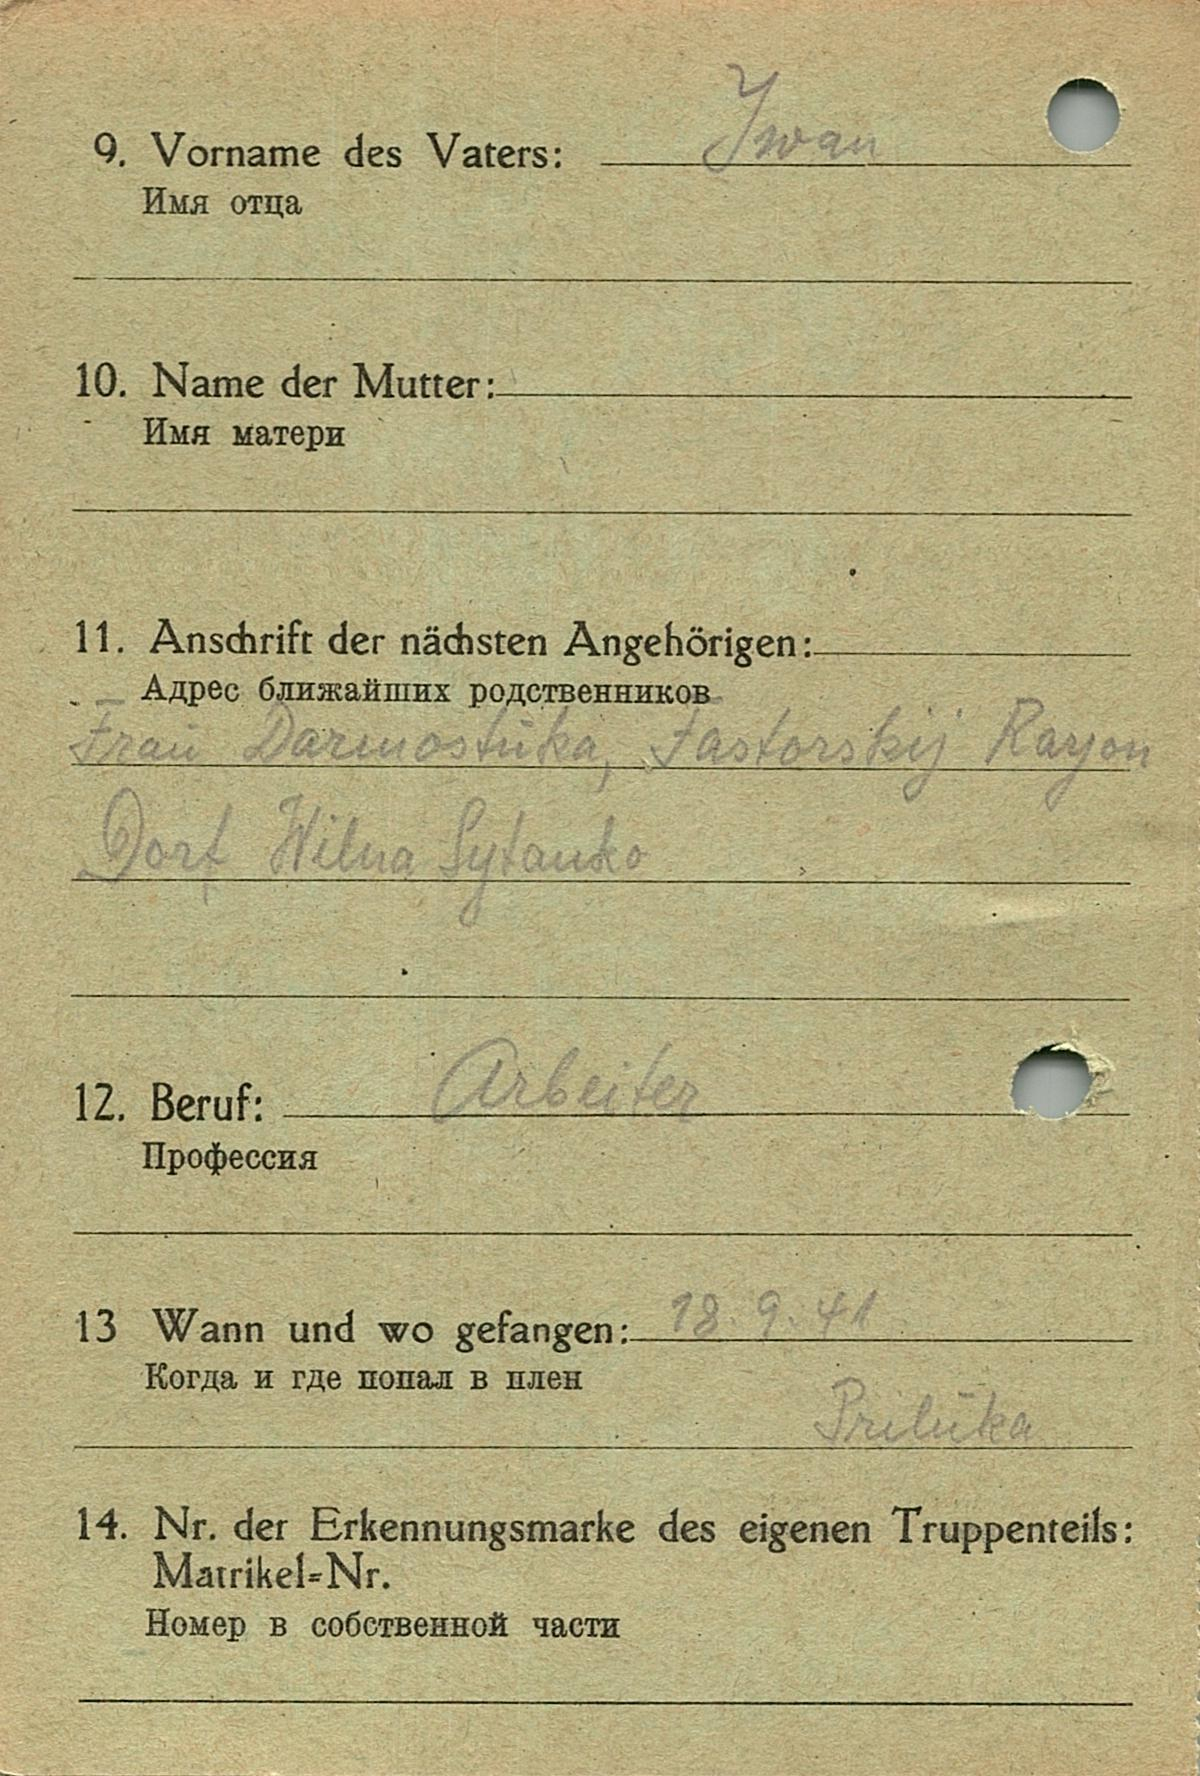 9. Vorname des Vaters: Iwan
Имя отца
10. Name der Mutter:
Имя матери
11. Anschrift der nächsten Angehörigen:
Адрес ближайших родственников
Frau Darmostuka, Fastorskij Rayon
Dorf Wilna Sytanko
12. Beruf: Arbeiter
Профессия
13 Wann und wo gefangen: 18.9.41
Когда и где попал в плен
Priluka
14. Nr. der Erkennungsmarke des eigenen Truppenteils:
Matrikel-Nr.
Номер в собственной части